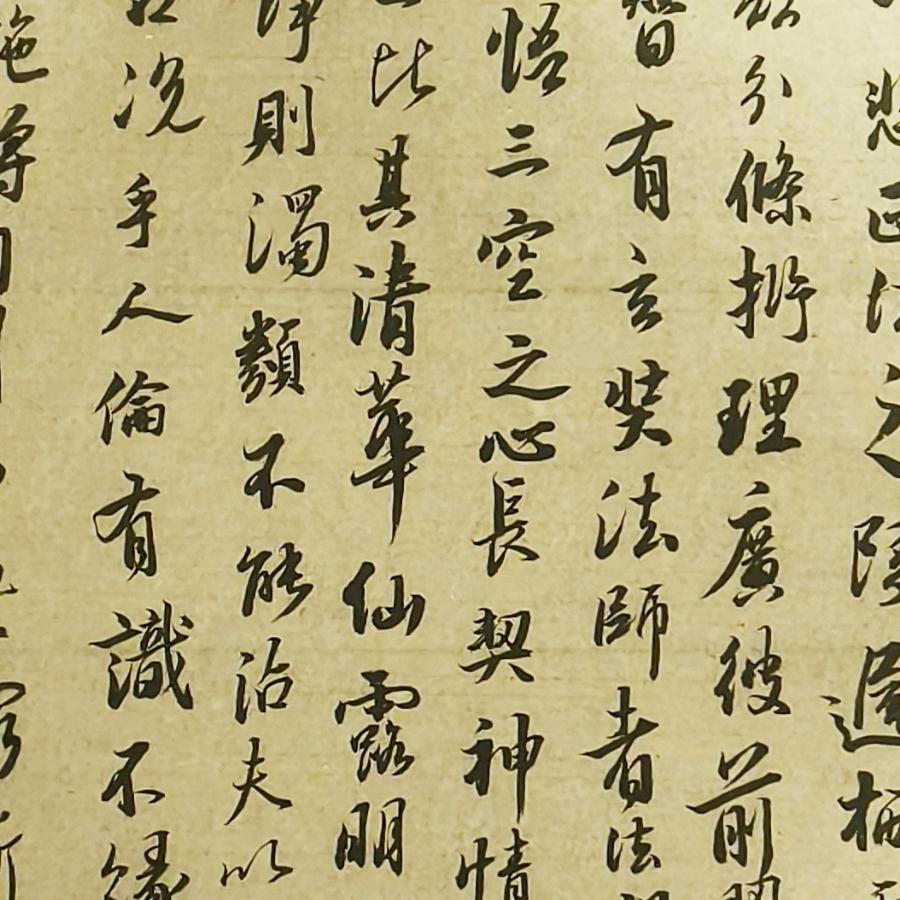 悲正法之陵遲栖
分條析理廣彼前
智有玄奘法師者法
悟三空之心長契神情
比其清華仙露明
淨則濁類不能沾夫以
況乎人倫有識不緣